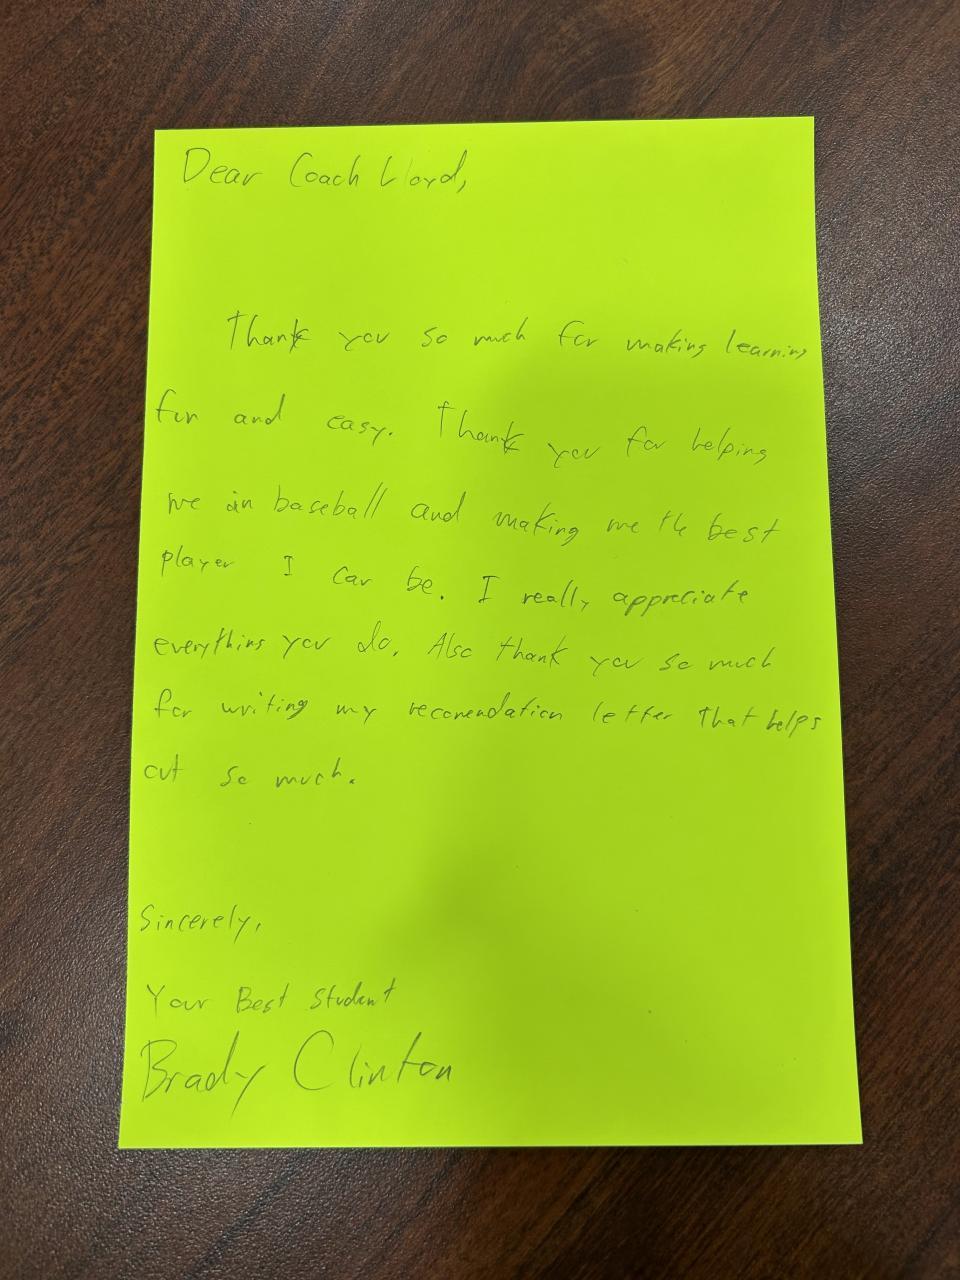 Dear Coach Lloyd,
Thank you so much for making learning
fun and easy. Thank you for helping
me in baseball and making me the best
player I can be. I really appreciate
everything you do. Also thank you so much
for writing my recomendation letter that helps
out so much.
Sincerely,
Your Best Student
Brady Clinton